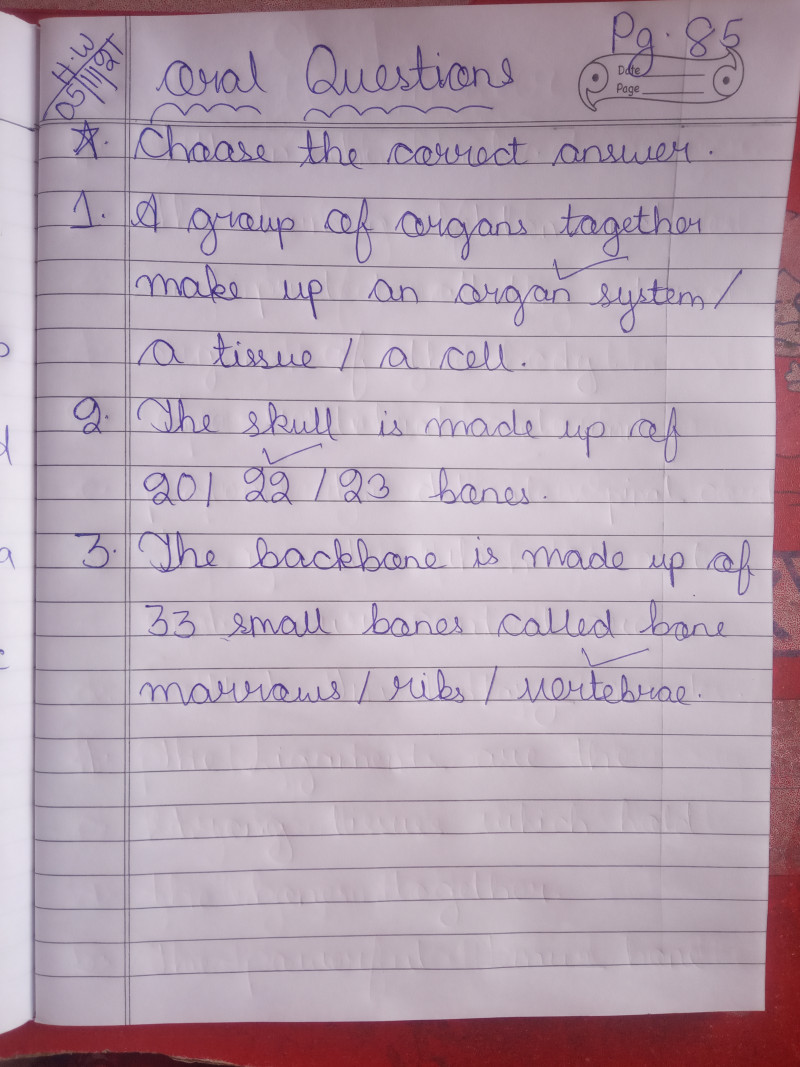 H.W
05/11/21
Pg. 85
Oral Questions
Date
Page
☆. Choose the correct answer.
1. A group of organs together
make up an organ system /
a tissue / a cell.
2. The skull is made up of
20 / 22 / 23 bones.
3. The backbone is made up of
33 small bones called bone
marrows / ribs / vertebrae.